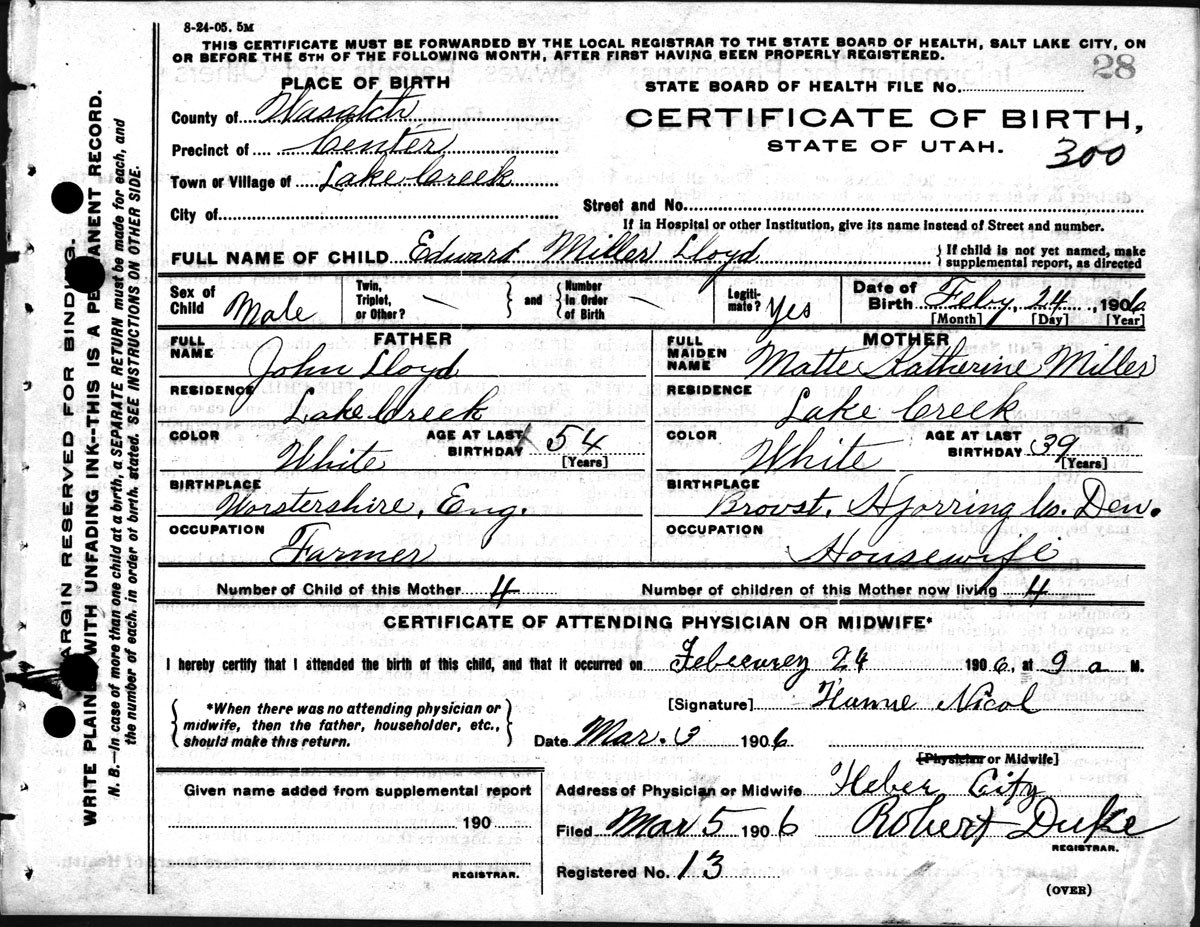 8-24-05. 5M
THIS CERTIFICATE MUST BE FORWARDED BY THE LOCAL REGISTRAR TO THE STATE BOARD OF HEALTH, SALT LAKE CITY, ON
OR BEFORE THE 5TH OF THE FOLLOWING MONTH, AFTER FIRST HAVING BEEN PROPERLY REGISTERED.
28
PLACE OF BIRTH
STATE BOARD OF HEALTH FILE No.
County of Wasatch,
CERTIFICATE OF BIRTH,
Precinct of Center
STATE OF UTAH.
300
Town or Village of Lake Creek
City of
Street and No.
If in Hospital or other Institution, give its name instead of Street and number.
FULL NAME OF CHILD Edward Miller Lloyd
If child is not yet named, make supplemental report, as directed
Sex of Child Male
Twin, Triplet, or Other? —
and
Number in Order of Birth —
Legitimate? Yes
Date of Birth Feby, 24, 1906
[Month] [Day] [Year]
FATHER
MOTHER
FULL NAME John Lloyd
FULL MAIDEN NAME Matte Katherine Miller
RESIDENCE Lake Creek
RESIDENCE Lake Creek
COLOR White
AGE AT LAST BIRTHDAY 54 [Years]
COLOR White
AGE AT LAST BIRTHDAY 39 [Years]
BIRTHPLACE Worstershire, Eng.
BIRTHPLACE Brovst, Hjorring Co. Den.
OCCUPATION Farmer
OCCUPATION Housewife
Number of Child of this Mother 4
Number of children of this Mother now living 4
CERTIFICATE OF ATTENDING PHYSICIAN OR MIDWIFE*
I hereby certify that I attended the birth of this child, and that it occurred on February 24 1906, at 9 a M.
*When there was no attending physician or
midwife, then the father, householder, etc.,
should make this return.
[Signature] Hanne Nicol
Date Mar. 3 1906
[Physician or Midwife]
Given name added from supplemental report
190
REGISTRAR.
Address of Physician or Midwife Heber City
Filed Mar 5 1906 Robert Duke
REGISTRAR.
Registered No. 13
(OVER)
MARGIN RESERVED FOR BINDING.
WRITE PLAINLY WITH UNFADING INK—THIS IS A PERMANENT RECORD.
N. B.—In case of more than one child at a birth, a SEPARATE RETURN must be made for each, and
the number of each, in order of birth, stated. SEE INSTRUCTIONS ON OTHER SIDE.